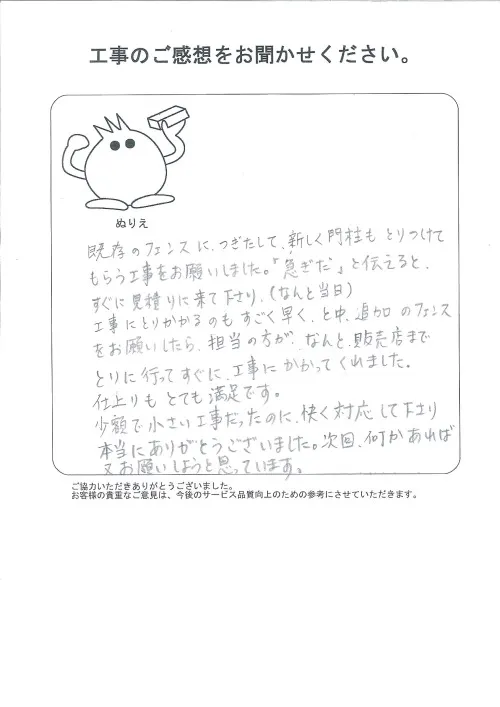 工事のご感想をお聞かせください。
ぬりえ
既存のフェンスに、つぎたして、新しく門柱も とりつけて
もらう工事をお願いしました。「急ぎだ」と伝えると、
すぐに見積りに来て下さり、(なんと当日)
工事にとりかかるのも すごく早く、と中、追加 のフェンス
をお願いしたら、担当の方が、なんと、販売店まで
とりに行ってすぐに、工事に かかってくれました。
仕上りも とても満足です。
少額で小さい工事だったのに、快く対応して下さり
本当にありがとうございました。次回、何かあれば
又お願いしようと思っています。
ご協力いただきありがとうございました。
お客様の貴重なご意見は、今後のサービス品質向上のための参考にさせていただきます。